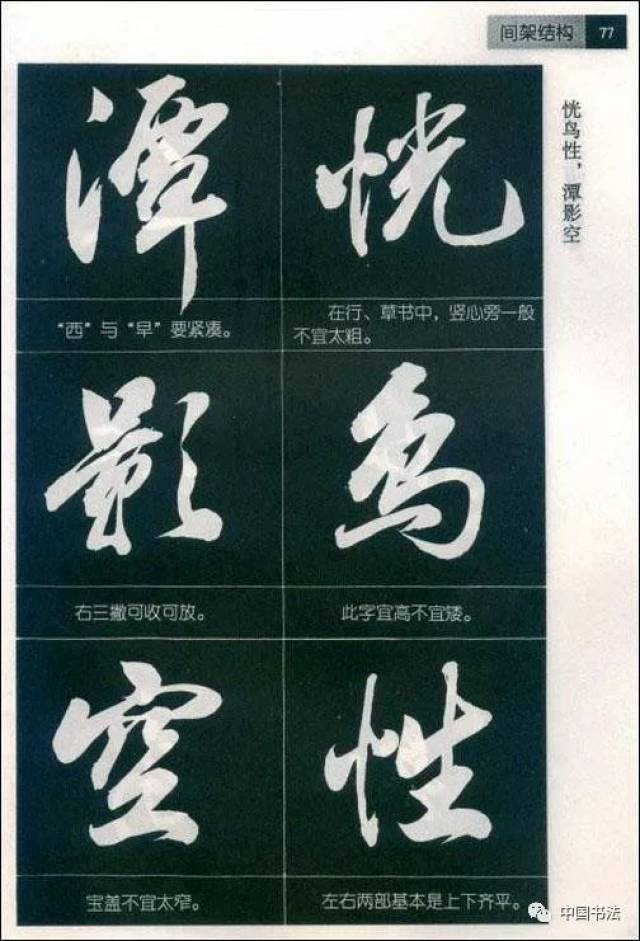 间架结构 77
恍鸟性，潭影空
恍
在行、草书中，竖心旁一般
不宜太粗。
鸟
此字宜高不宜矮。
性
左右两部基本是上下齐平。
潭
“西”与“早”要紧凑。
影
右三撇可收可放。
空
宝盖不宜太窄。
中国书法